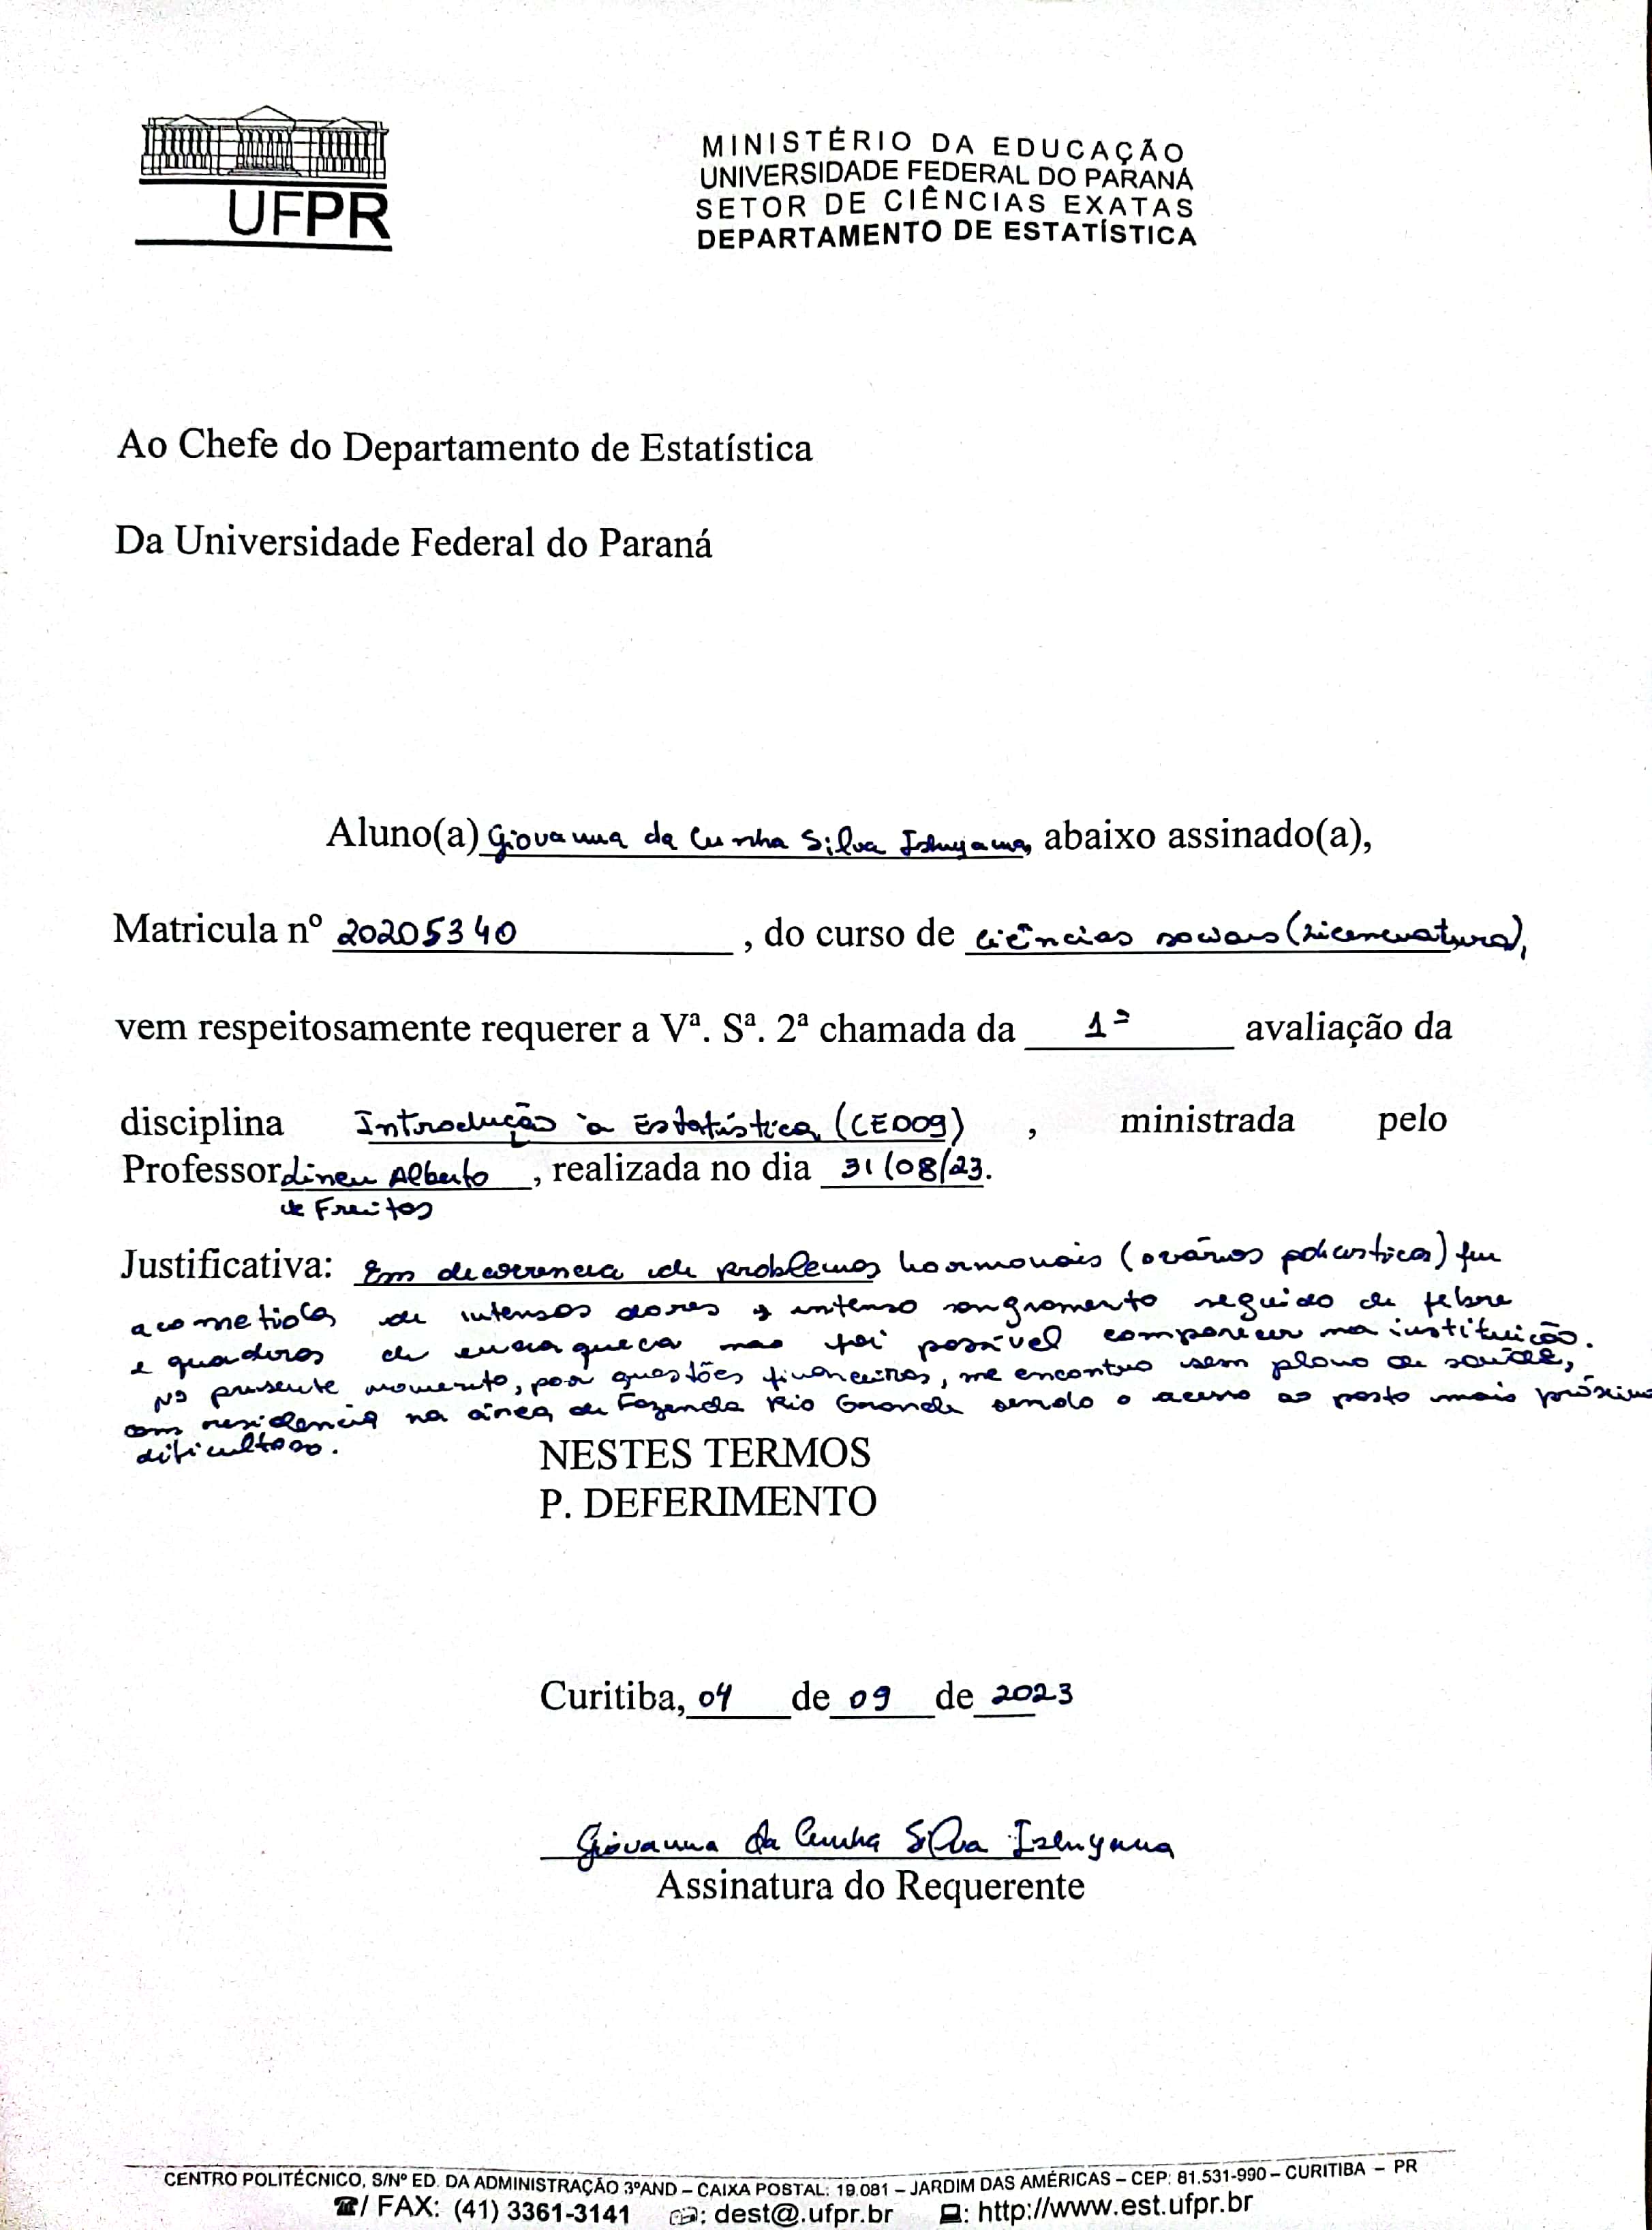 UFPR
MINISTÉRIO DA EDUCAÇÃO
UNIVERSIDADE FEDERAL DO PARANÁ
SETOR DE CIÊNCIAS EXATAS
DEPARTAMENTO DE ESTATÍSTICA
Ao Chefe do Departamento de Estatística
Da Universidade Federal do Paraná
Aluno(a) Giovanna da Cunha Silva Ishuyama, abaixo assinado(a),
Matricula nº 20205340, do curso de ciências sociais (licenciatura),
vem respeitosamente requerer a Vª. Sª. 2ª chamada da 1ª avaliação da
disciplina Introdução à Estatística (CE009), ministrada pelo
Professor Dineu Alberto, realizada no dia 31/08/23.
de Freitas
Justificativa: Em decorrencia de problemas hormonais (ovários policisticos) fui
acometida de intensas dores e intenso sangramento seguido de febre
e quadros de enxaqueca não foi possível comparecer na instituição.
No presente momento, por questões financeiras, me encontro sem plano de saúde,
com residencia na área de Fazenda Rio Grande sendo o acesso ao posto mais próximo
dificultoso.
NESTES TERMOS
P. DEFERIMENTO
Curitiba, 04 de 09 de 2023
Giovanna da Cunha Silva Ishuyama
Assinatura do Requerente
CENTRO POLITÉCNICO, S/Nº ED. DA ADMINISTRAÇÃO 3ºAND – CAIXA POSTAL: 19.081 – JARDIM DAS AMÉRICAS – CEP: 81.531-990 – CURITIBA – PR
☎/ FAX: (41) 3361-3141 : dest@.ufpr.br : http://www.est.ufpr.br